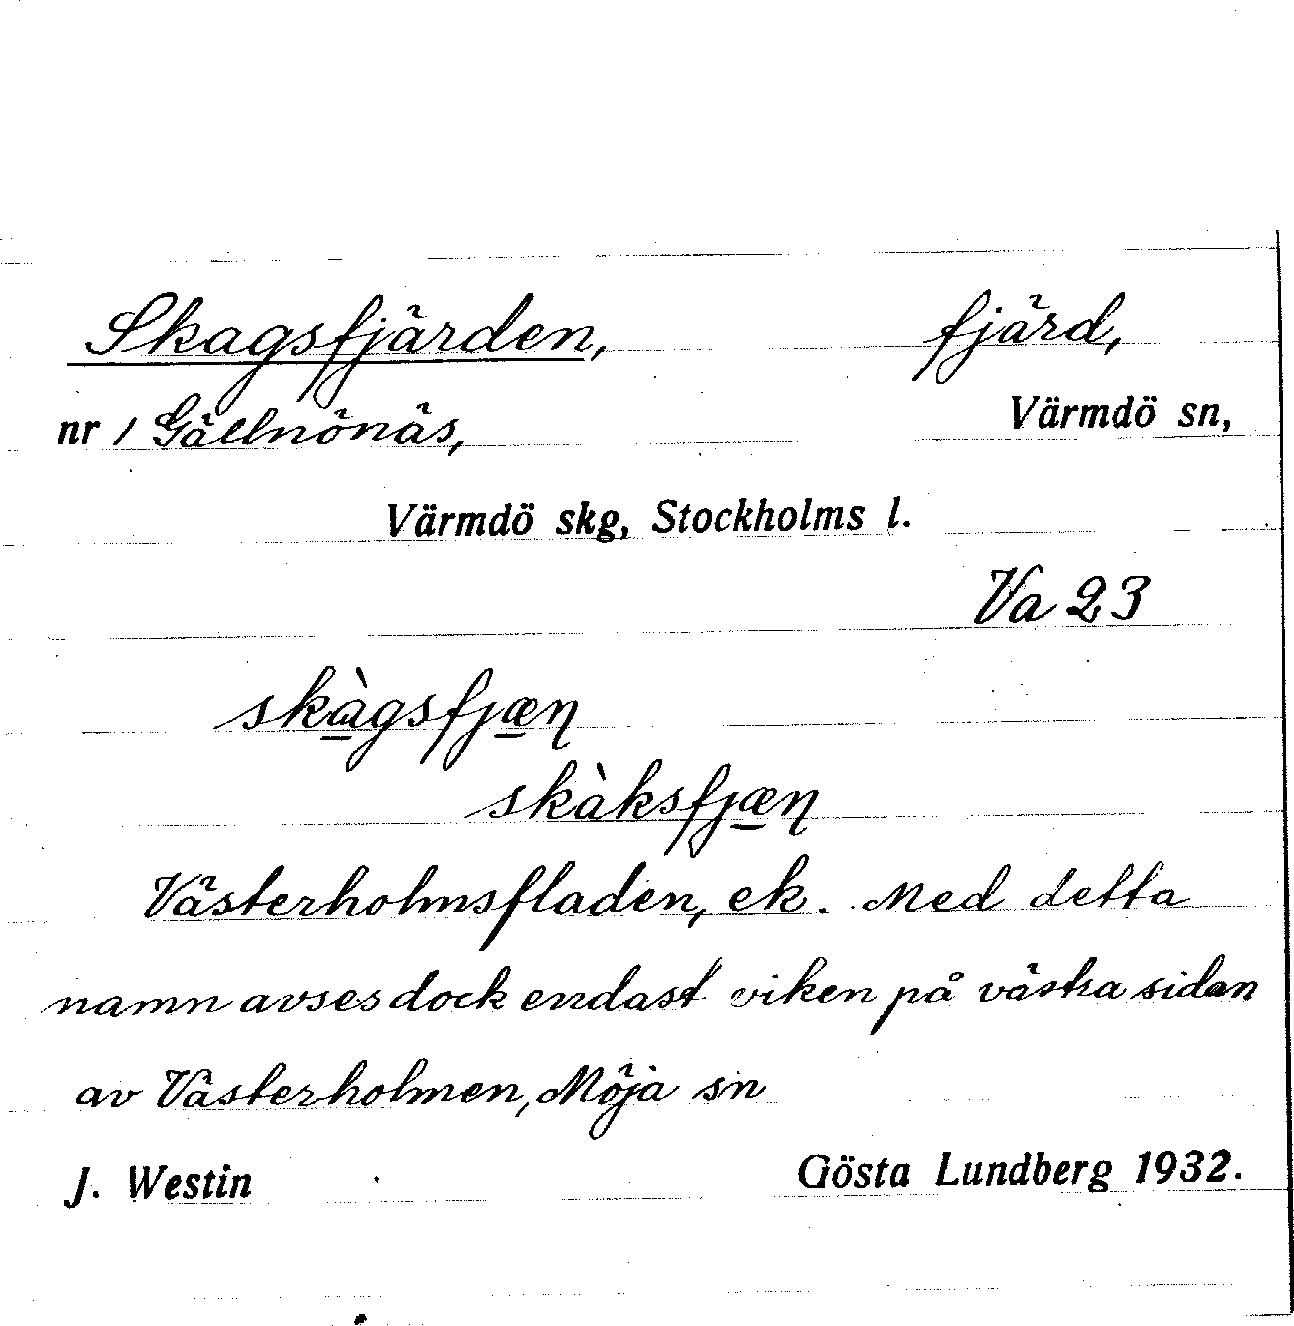 Skagsfjärden, fjärd,
nr 1 Gällnönäs, Värmdö sn,
Värmdö skg, Stockholms l.
Va 23
skàgsfjæɳ
skàksfjæɳ
Västerholmsfladen, ek. Med detta
namn avses dock endast viken på västra sidan
av Västerholmen, Möja sn
J. Westin Gösta Lundberg 1932.